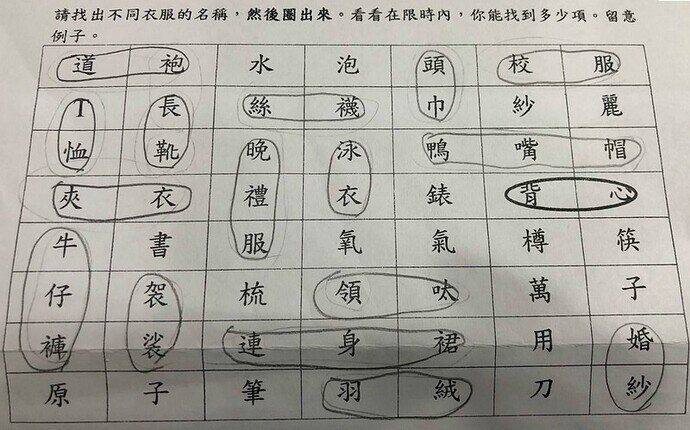 請找出不同衣服的名稱，然後圈出來。看看在限時內，你能找到多少項。留意
例子。
道 袍 水 泡 頭 校 服
T 長 絲 襪 巾 紗 麗
恤 靴 晚 泳 鴨 嘴 帽
夾 衣 禮 衣 錶 背 心
牛 書 服 氧 氣 樽 筷
仔 袈 梳 領 呔 萬 子
褲 裟 連 身 裙 用 婚
原 子 筆 羽 絨 刀 紗